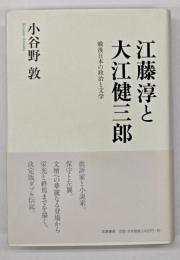 江藤淳と
大江健三郎
戦後日本の政治と文学
小谷野 敦
批評家と小説家、
保守と左翼。
文壇への華麗なる登場から
栄光と終焉までを描く、
決定版ダブル伝記。
筑摩書房